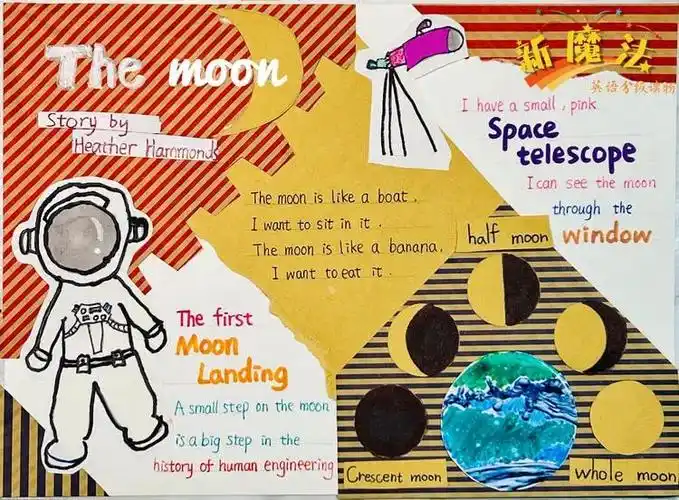 The moon
Story by
Heather Hammonds
新魔法
英语分级读物
I have a small, pink
Space
telescope
I can see the moon
through the
window
The moon is like a boat.
I want to sit in it.
The moon is like a banana.
I want to eat it.
half moon
The first
Moon
Landing
A small step on the moon
is a big step in the
history of human engineering
Crescent moon
whole moon